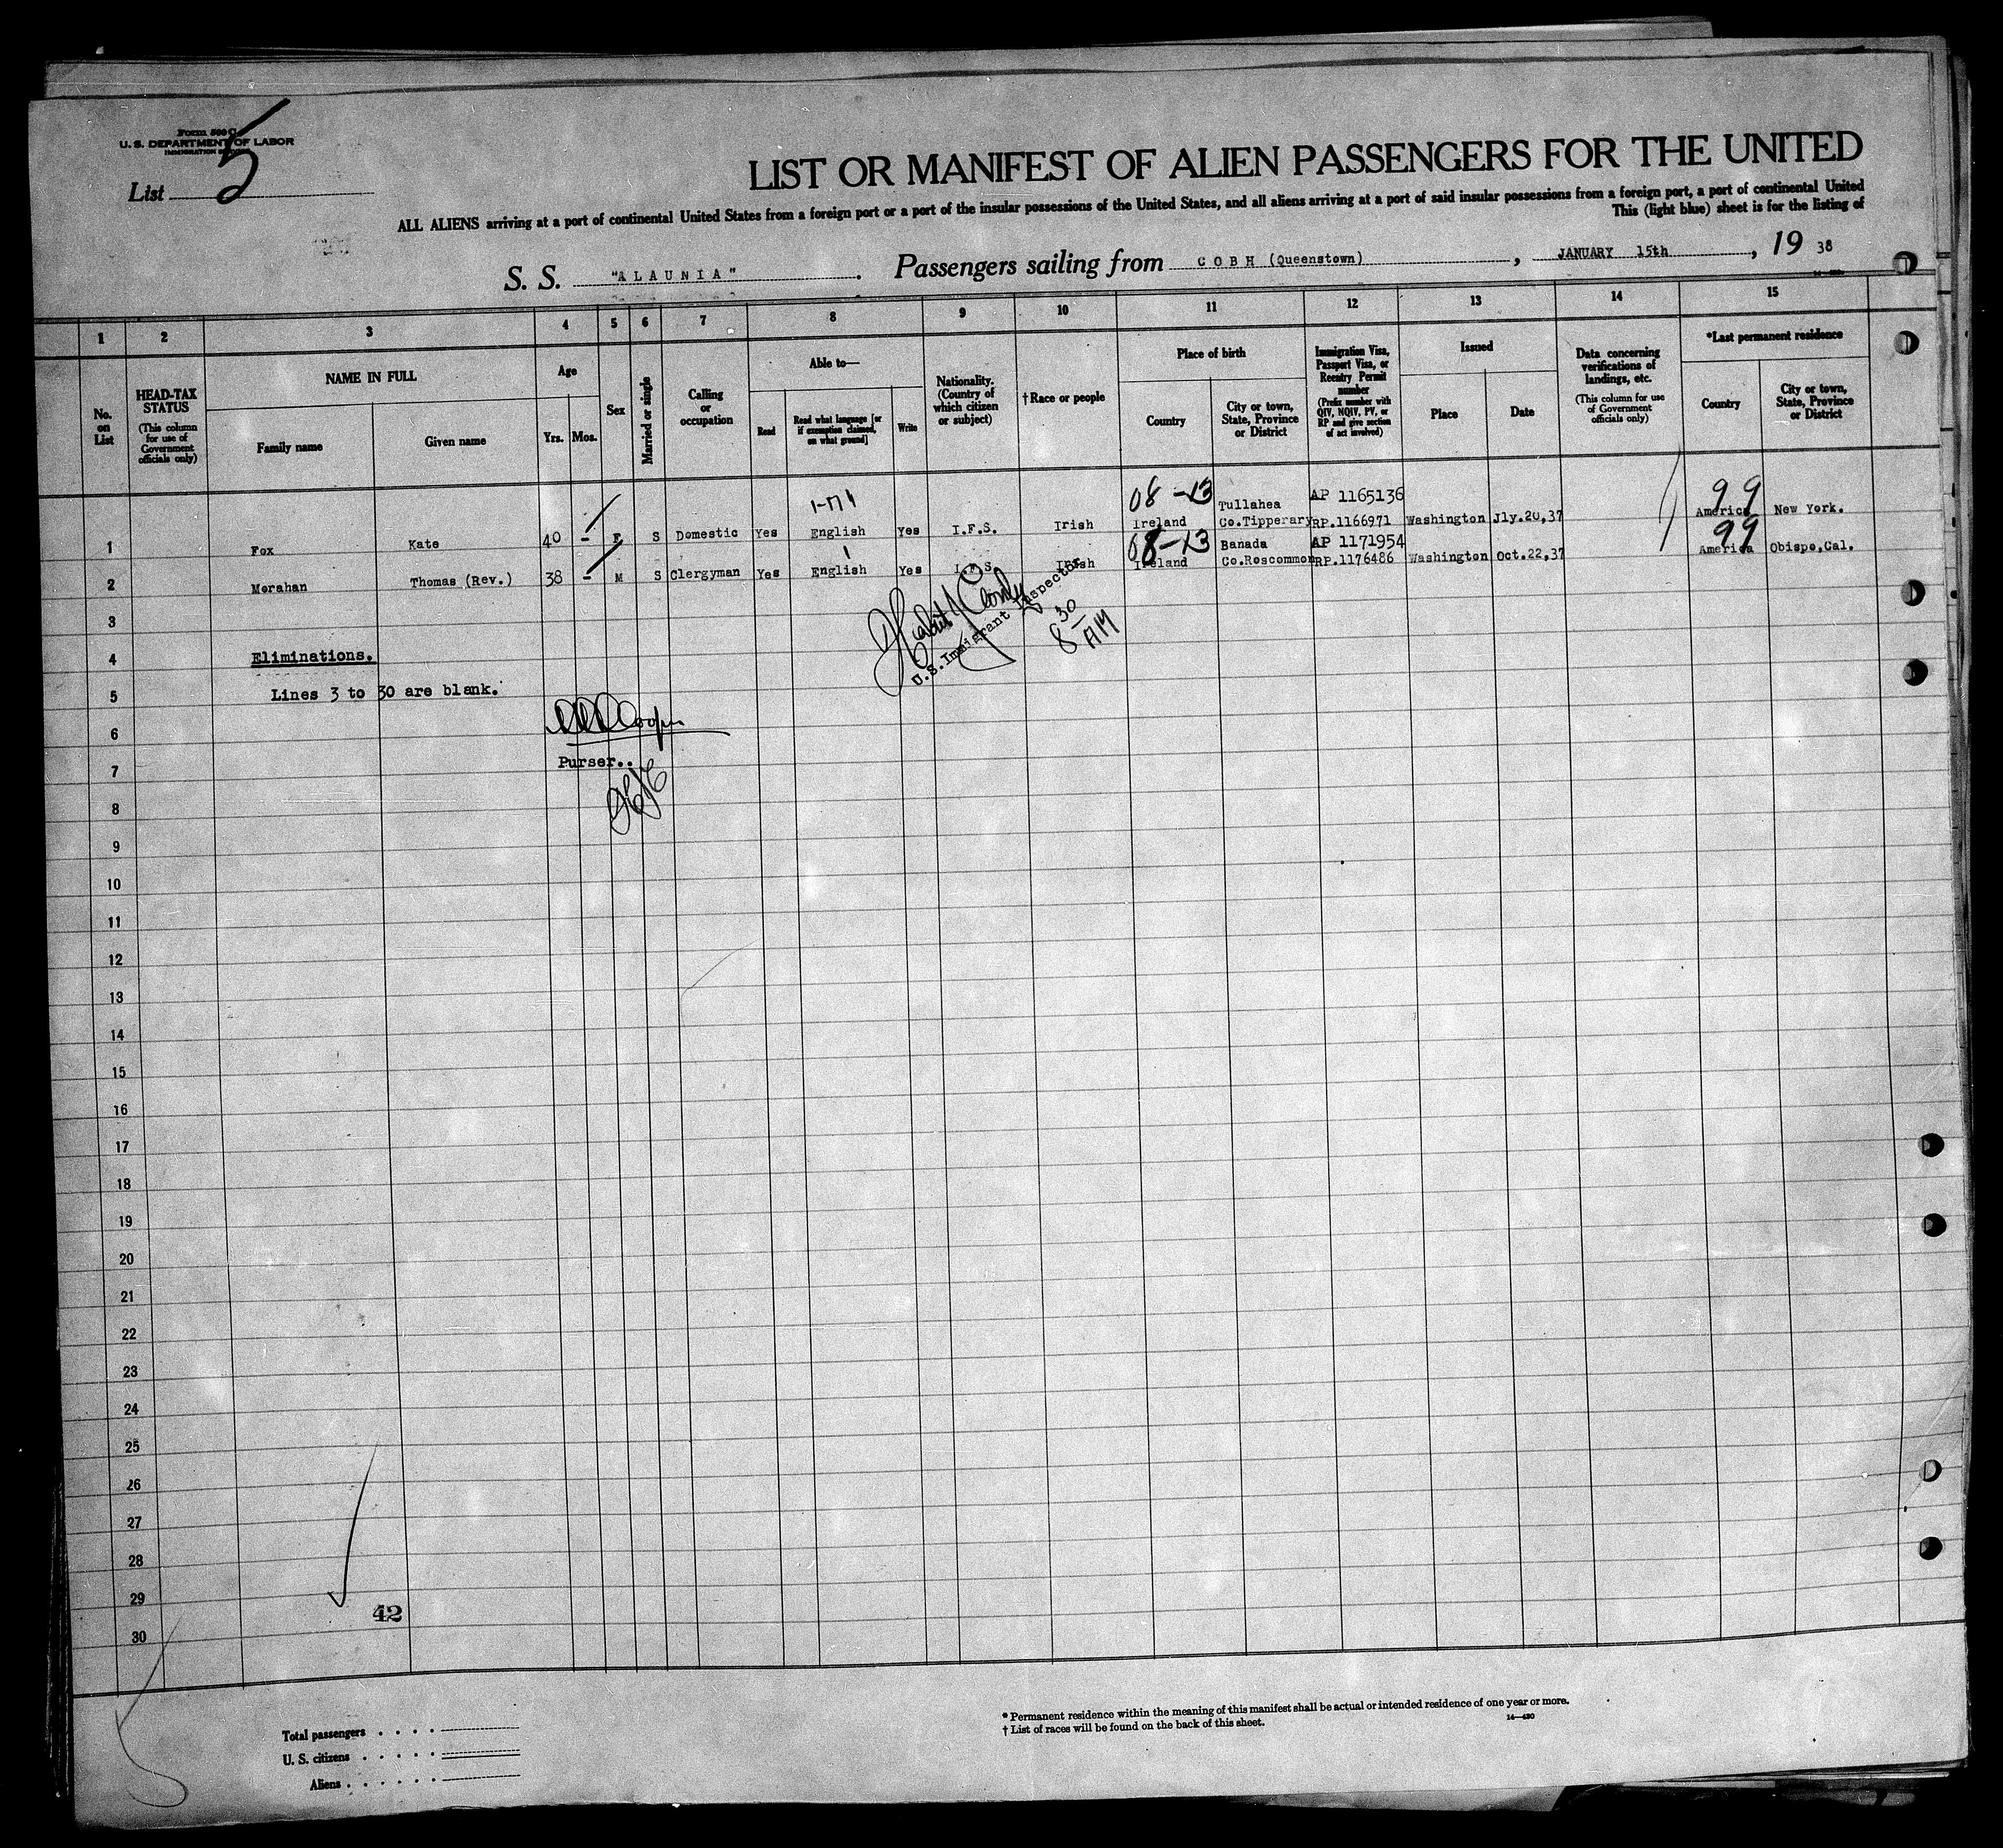 Form 500 C
U. S. DEPARTMENT OF LABOR
IMMIGRATION
List 5
LIST OR MANIFEST OF ALIEN PASSENGERS FOR THE UNITED
ALL ALIENS arriving at a port of continental United States from a foreign port or a port of the insular possessions of the United States, and all aliens arriving at a port of said insular possessions from a foreign port, a port of continental United
This (light blue) sheet is for the listing of
S. S. "ALAUNIA". Passengers sailing from COBH (Queenstown), JANUARY 15th, 19 38
1 2 3 4 5 6 7 8 9 10 11 12 13 14 15
No. on List
HEAD-TAX STATUS (This column for use of Government officials only)
NAME IN FULL
Family name
Given name
Age
Yrs. Mos.
Sex
Married or single
Calling or occupation
Able to—
Read
Read what language [or if exemption claimed, on what ground]
Write
Nationality. (Country of which citizen or subject)
†Race or people
Place of birth
Country
City or town, State, Province or District
Immigration Visa, Passport Visa, or Reentry Permit number (Prefix number with QIV, NQIV, PV, or RP and give section of act involved)
Issued
Place
Date
Data concerning verifications of landings, etc. (This column for use of Government officials only)
*Last permanent residence
Country
City or town, State, Province or District
08 -13 Tullahea AP 1165136 99
1 Fox Kate 40 - F S Domestic Yes English Yes I.F.S. Irish Ireland Co.Tipperary RP.1166971 Washington Jly.20,37 America New York.
08-13 Banada AP 1171954 99
2 Morahan Thomas (Rev.) 38 - M S Clergyman Yes English Yes I.F.S. Irish Ireland Co.Roscommon RP.1176486 Washington Oct.22,37 America Obispo,Cal.
3
4 Eliminations.
5 Lines 3 to 30 are blank.
U.S. Immigrant Inspector
8 30 AM
6 Cooper
7 Purser..
8
9
10
11
12
13
14
15
16
17
18
19
20
21
22
23
24
25
26
27
28
29
42
30
Total passengers
U. S. citizens
Aliens
* Permanent residence within the meaning of this manifest shall be actual or intended residence of one year or more.
† List of races will be found on the back of this sheet.
14—430